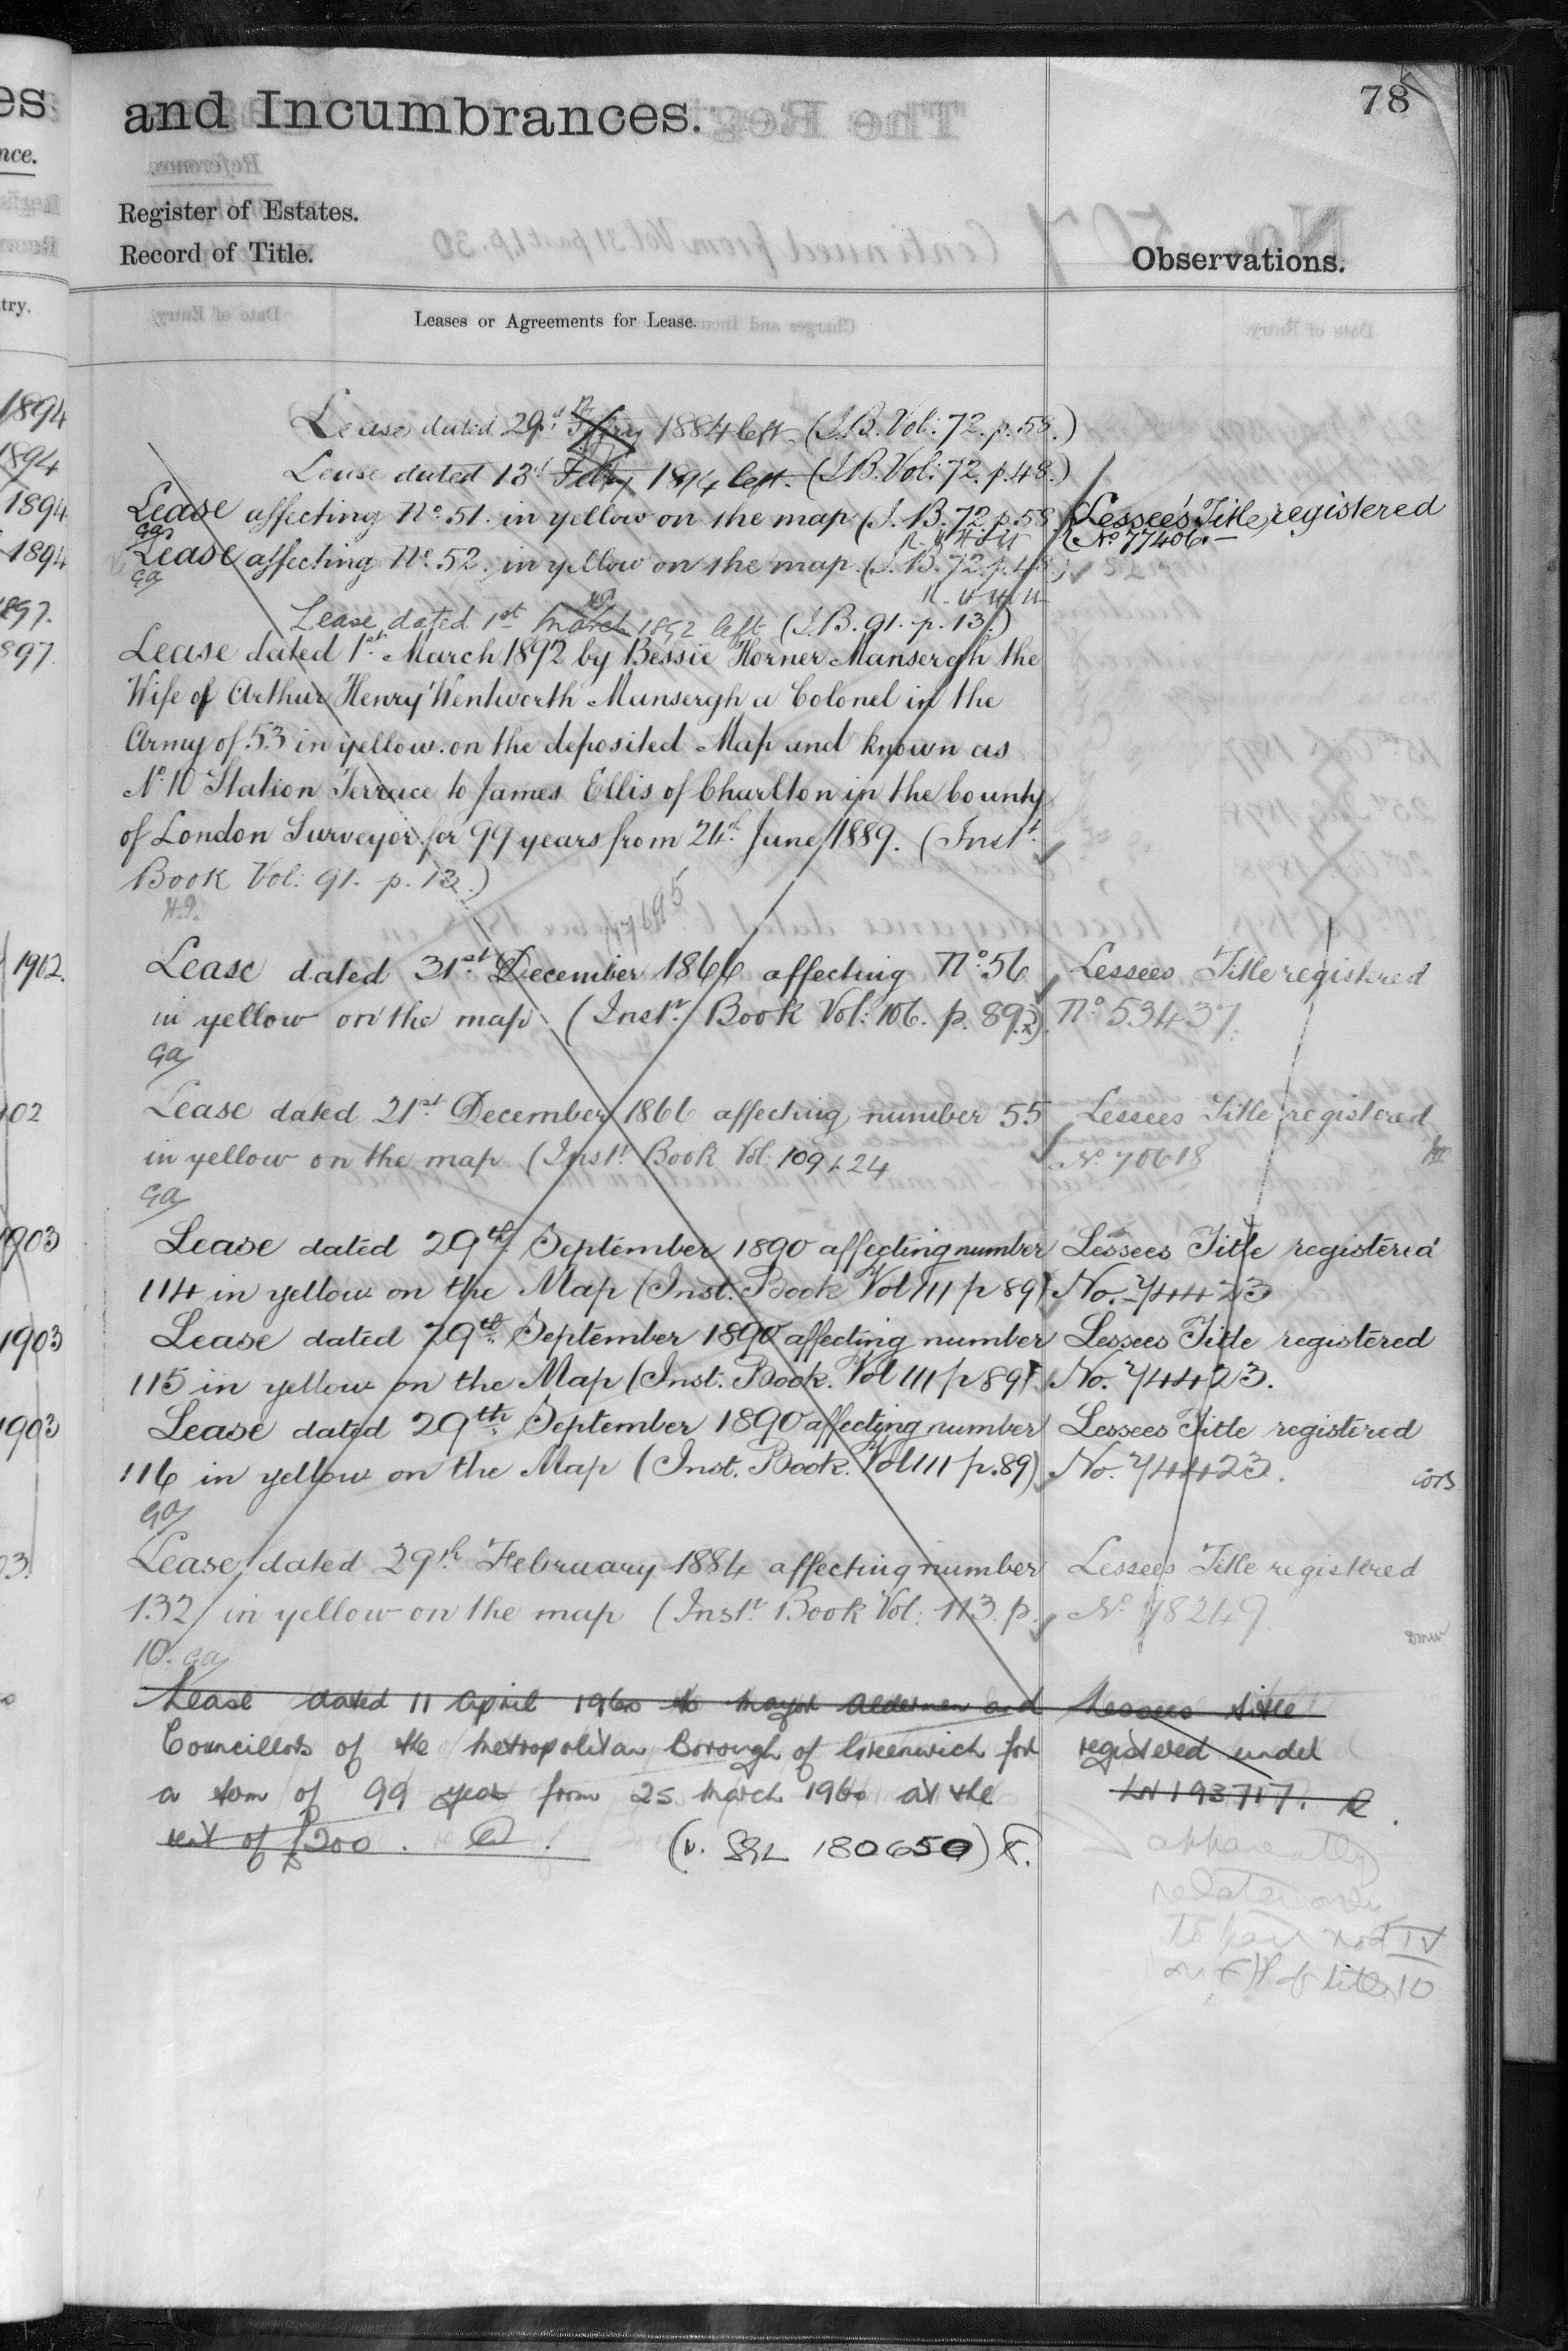 es
and Incumbrances.
78
nce.
Register of Estates.
Record of Title.
Observations.
try.
Leases or Agreements for Lease.
1894
Lease dated 29th 1884 left. (I.B. Vol: 72. p. 58.)
1894
Lease dated 13th Febry 1894 left. (I.B. Vol: 72. p. 48.)
1894
Lease affecting No. 51. in yellow on the map (I. B. 72. p. 58 Lessee's Title registered
No 77406.—
ga
1894
Lease affecting No. 52. in yellow on the map. (I. B. 72. p. 48)
ga
1897.
Lease dated 1st March 1892 left (I.B. 91. p. 13.)
897.
Lease dated 1st March 1892 by Bessie Horner Mansergh the
Wife of Arthur Henry Wentworth Mansergh a Colonel in the
Army of 53 in yellow on the deposited Map and known as
No. 10 Station Terrace to James Ellis of Charlton in the County
of London Surveyor for 99 years from 24th June 1889. (Inst.
Book Vol: 91. p. 13.)
1902.
Lease dated 31st December 1866 affecting No. 56 Lessees Title registered
in yellow on the map (Inst. Book Vol: 106. p. 89) No 53437.
ga
02
Lease dated 21st December 1866 affecting number 55 Lessees Title registered
in yellow on the map (Inst. Book Vol: 109 p. 24 No. 70618
ga
1903
Lease dated 29th September 1890 affecting number Lessees Title registered
114 in yellow on the Map (Inst. Book Vol 111 p 89) No. 74423
1903
Lease dated 29th September 1890 affecting number Lessees Title registered
115 in yellow on the Map (Inst. Book. Vol 111 p 89) No. 74423.
1903
Lease dated 29th September 1890 affecting number Lessees Title registered
116 in yellow on the Map (Inst. Book. Vol 111 p. 89) No. 74423.
ga
03.
Lease dated 29th February 1884 affecting number Lessees Title registered
132 in yellow on the map (Inst. Book Vol: 113. p. No. 78249
10. ga
Lease dated 11 April 1960 to Mayor Aldermen and Lessees title
Councillors of the Metropolitan Borough of Greenwich for registered under
a term of 99 years from 25 March 1960 at the LN 193717.
rent of £200. (v. SGL 180650)
apparently
relates only
to